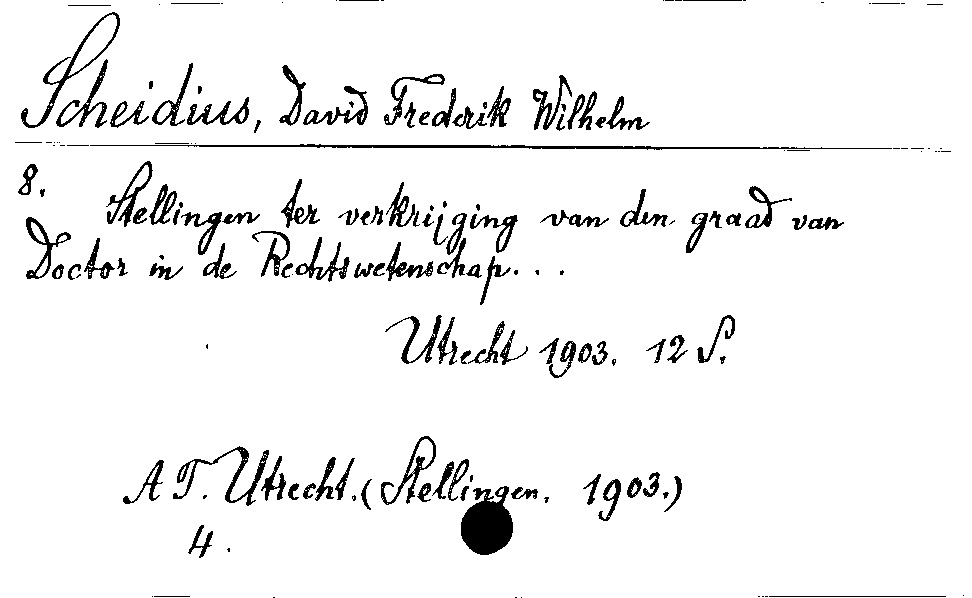 Scheidius, David Frederik Wilhelm
8. Stellingen ter verkrijging van den graad van
Doctor in de Rechtswetenschap...
Utrecht 1903. 12 S.
A T. Utrecht. (Stellingen. 1903.)
4.